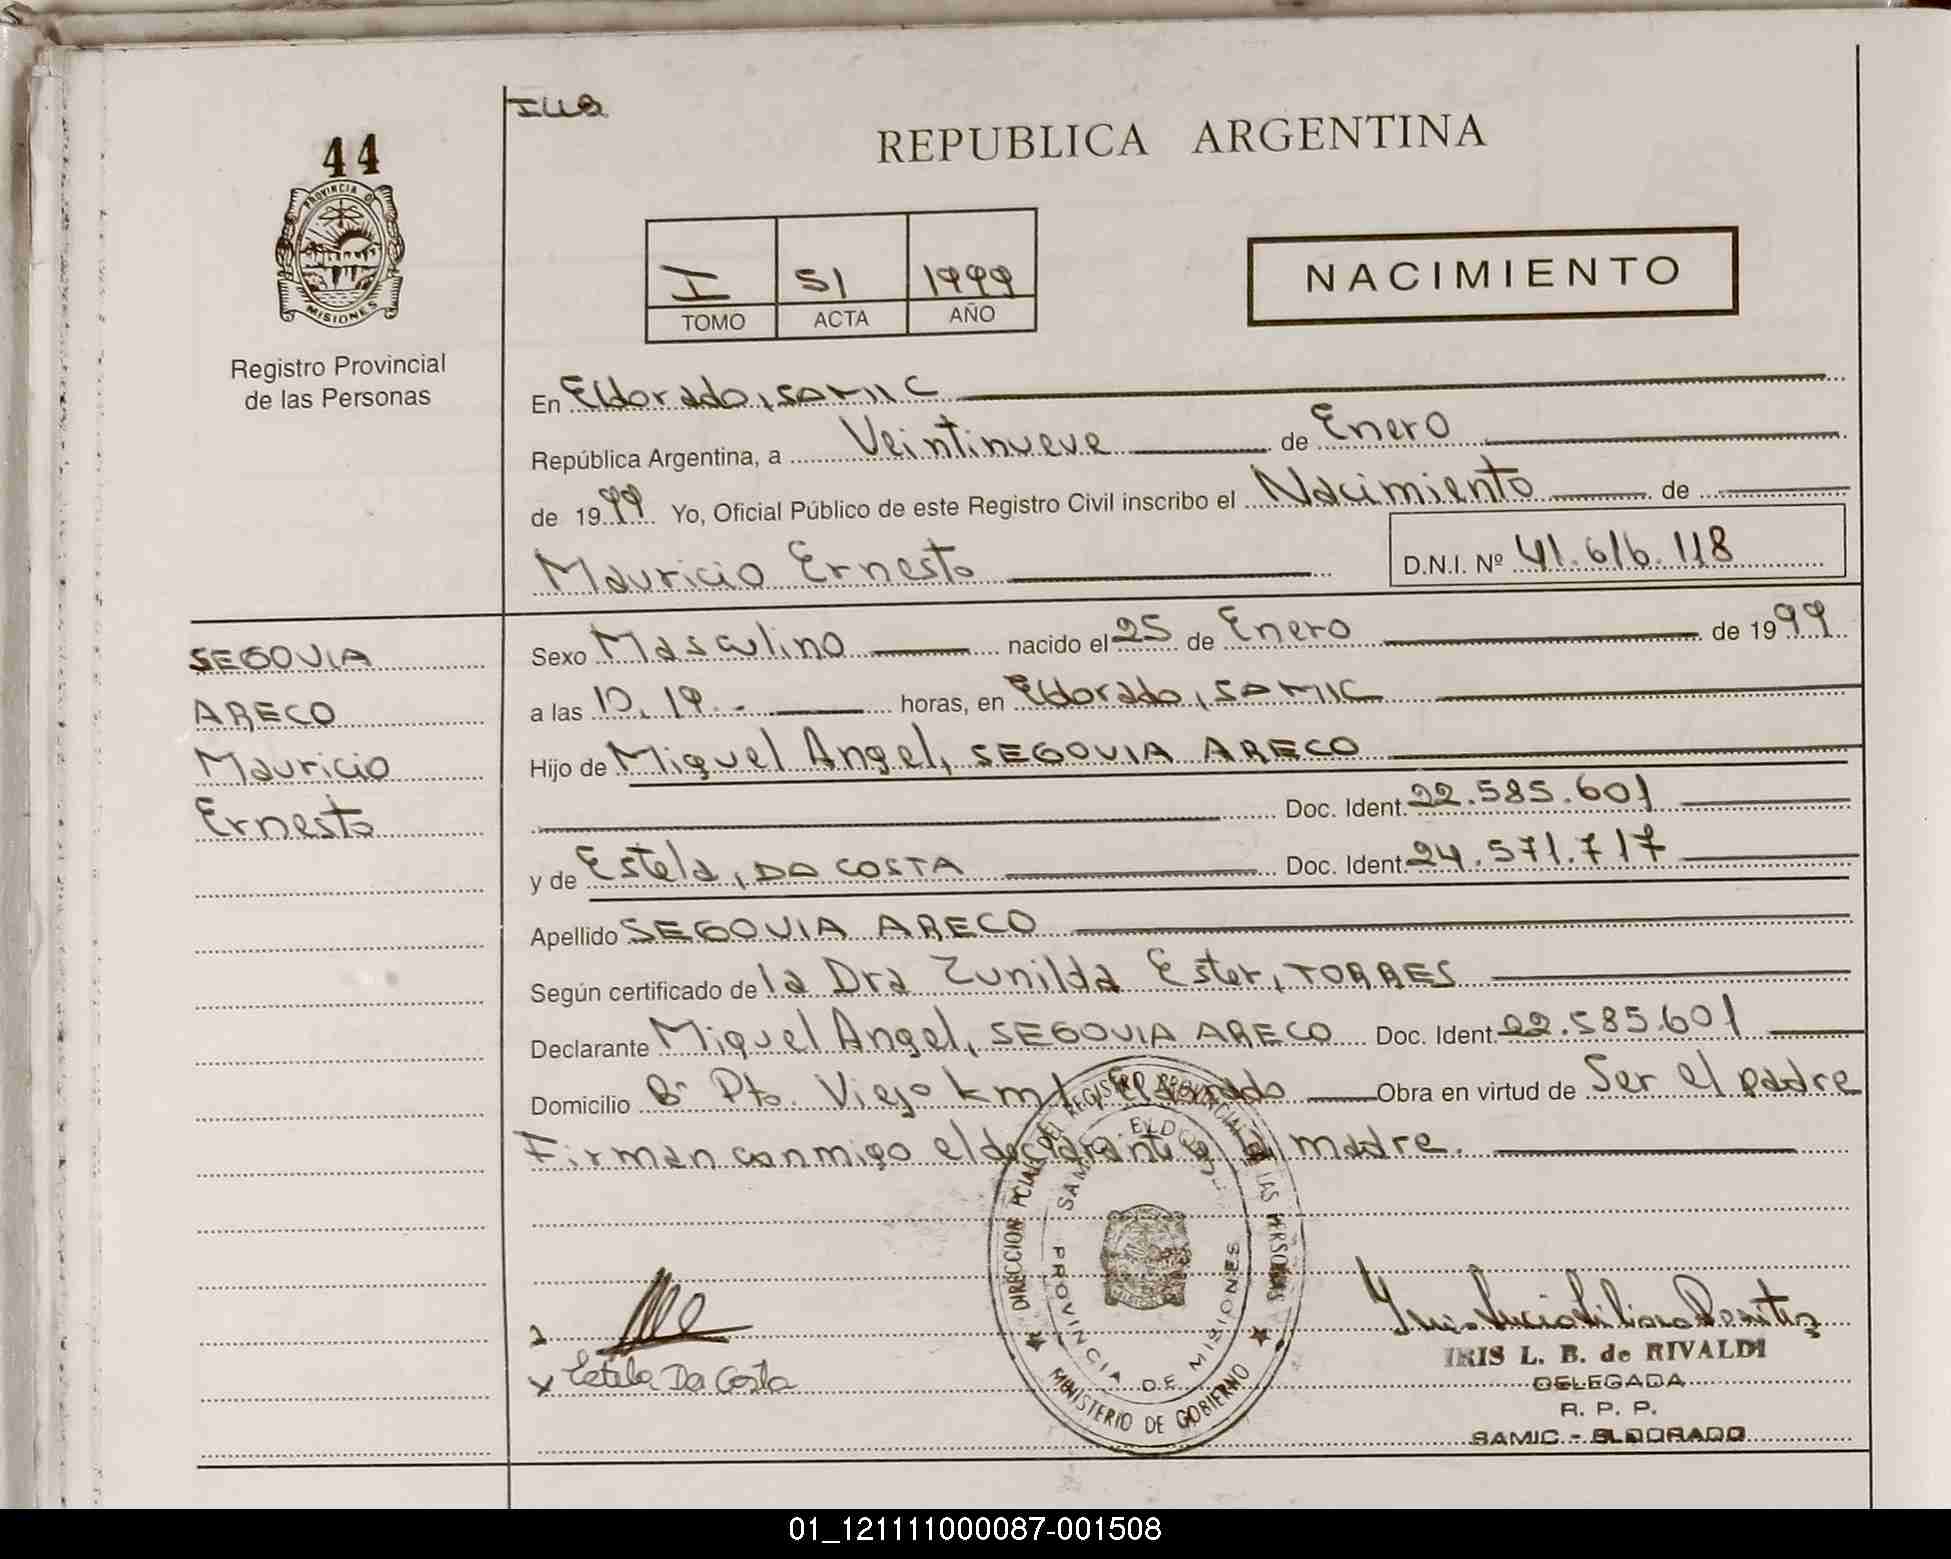 ILLB
44
REPUBLICA ARGENTINA
PROVINCIA DE
MISIONES
Registro Provincial
de las Personas
I 51 1999
TOMO ACTA AÑO
NACIMIENTO
En Eldorado, SAMIC
República Argentina, a Veintinueve de Enero
de 1999 Yo, Oficial Público de este Registro Civil inscribo el Nacimiento de
Mauricio Ernesto D.N.I. Nº 41.616.118
SEGOVIA
ARECO
Mauricio
Ernesto
Sexo Masculino nacido el 25 de Enero de 1999
a las 10.19.- horas, en Eldorado, SAMIC
Hijo de Miguel Angel, SEGOVIA ARECO
Doc. Ident. 22.585.601
y de Estela, DA COSTA Doc. Ident. 24.571.717
Apellido SEGOVIA ARECO
Según certificado de la Dra Zunilda Ester, TORRES
Declarante Miguel Angel, SEGOVIA ARECO Doc. Ident. 22.585.601
Domicilio Bº Pto. Viejo km 1, Eldorado Obra en virtud de Ser el padre
Firman conmigo el declarante y la madre.
DIRECCION PCIAL DEL REGISTRO PROVINCIAL DE LAS PERSONAS
SAMIC ELDORADO
PROVINCIA DE MISIONES
MINISTERIO DE GOBIERNO
x Estela Da Costa
IRIS L. B. de RIVALDI
DELEGADA
R. P. P.
SAMIC - ELDORADO
01_121111000087-001508